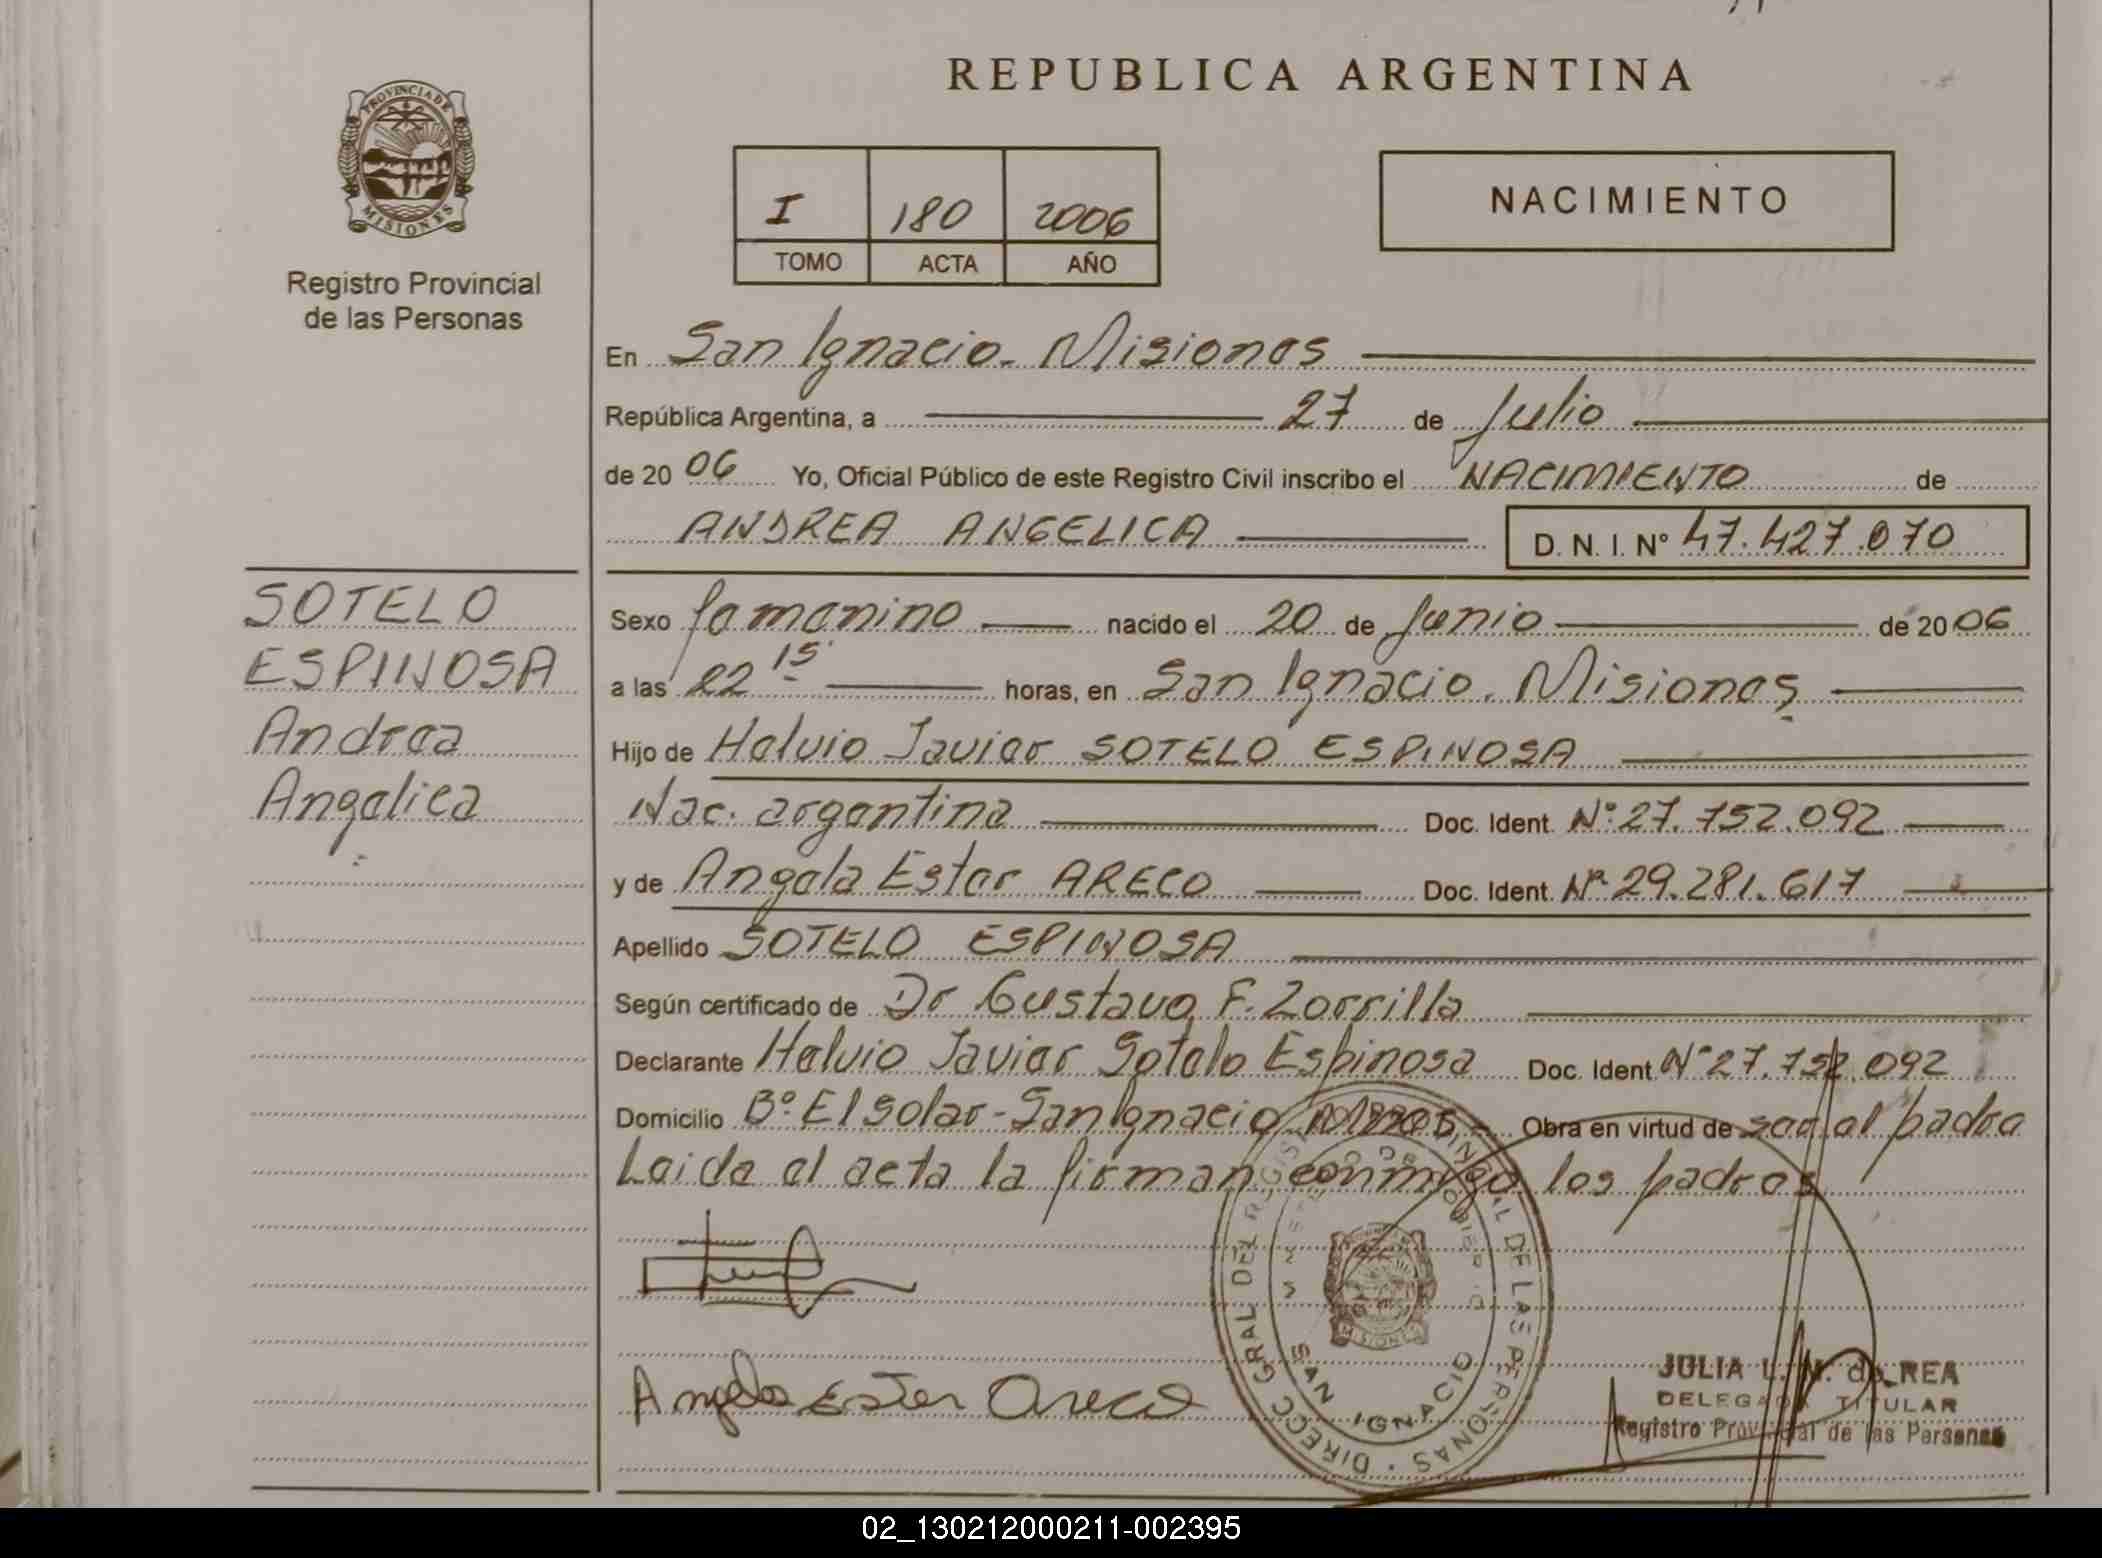 REPUBLICA ARGENTINA
PROVINCIA DE
MISIONES
Registro Provincial
de las Personas
I 180 2006
TOMO ACTA AÑO
NACIMIENTO
En San Ignacio. Misiones
República Argentina, a 27 de Julio
de 20 06 Yo, Oficial Público de este Registro Civil inscribo el NACIMIENTO de
ANDREA ANGELICA D. N. I. Nº 47.427.070
SOTELO
ESPINOSA
Andrea
Angelica
Sexo femenino nacido el 20 de Junio de 20 06
a las 22 15 horas, en San Ignacio. Misiones
Hijo de Helvio Javier SOTELO ESPINOSA
Nac. argentina Doc. Ident. Nº 27.752.092
y de Angela Ester ARECO Doc. Ident. Nº 29.281.617
Apellido SOTELO ESPINOSA
Según certificado de Dr Gustavo F. Zorrilla
Declarante Helvio Javier Sotelo Espinosa Doc. Ident. Nº 27.752.092
Domicilio Bº El Solar - San Ignacio Mnes - Obra en virtud de ser el padre
Leida el acta la firman conmigo los padres
Angela Ester Areco
DIRECC GRAL DEL REGISTRO PROVINCIAL DE LAS PERSONAS
SAN IGNACIO
MISIONES
JULIA L. N. de REA
DELEGADA TITULAR
Registro Provincial de las Personas
02_130212000211-002395